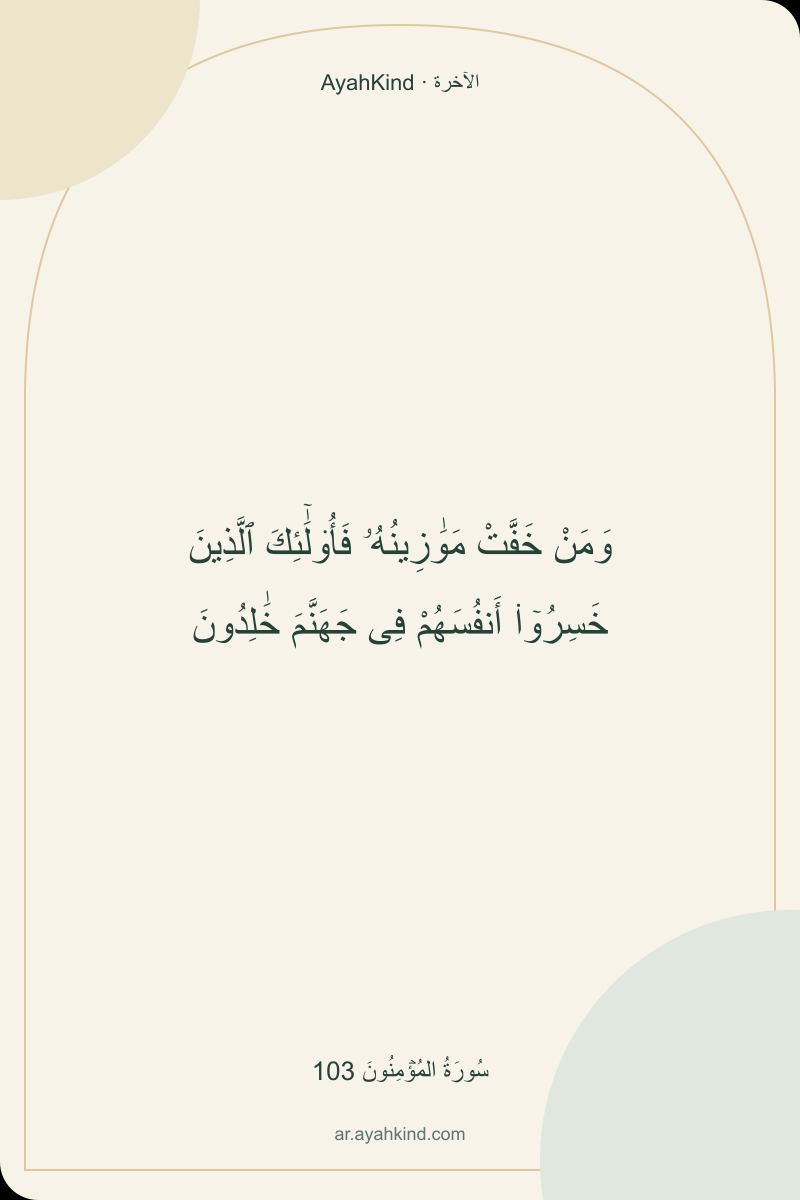 AyahKind · الآخرة
وَمَنْ خَفَّتْ مَوَٰزِينُهُۥ فَأُو۟لَٰٓئِكَ ٱلَّذِينَ
خَسِرُوٓا۟ أَنفُسَهُمْ فِى جَهَنَّمَ خَٰلِدُونَ
سُورَةُ المُؤۡمِنُونَ 103
ar.ayahkind.com